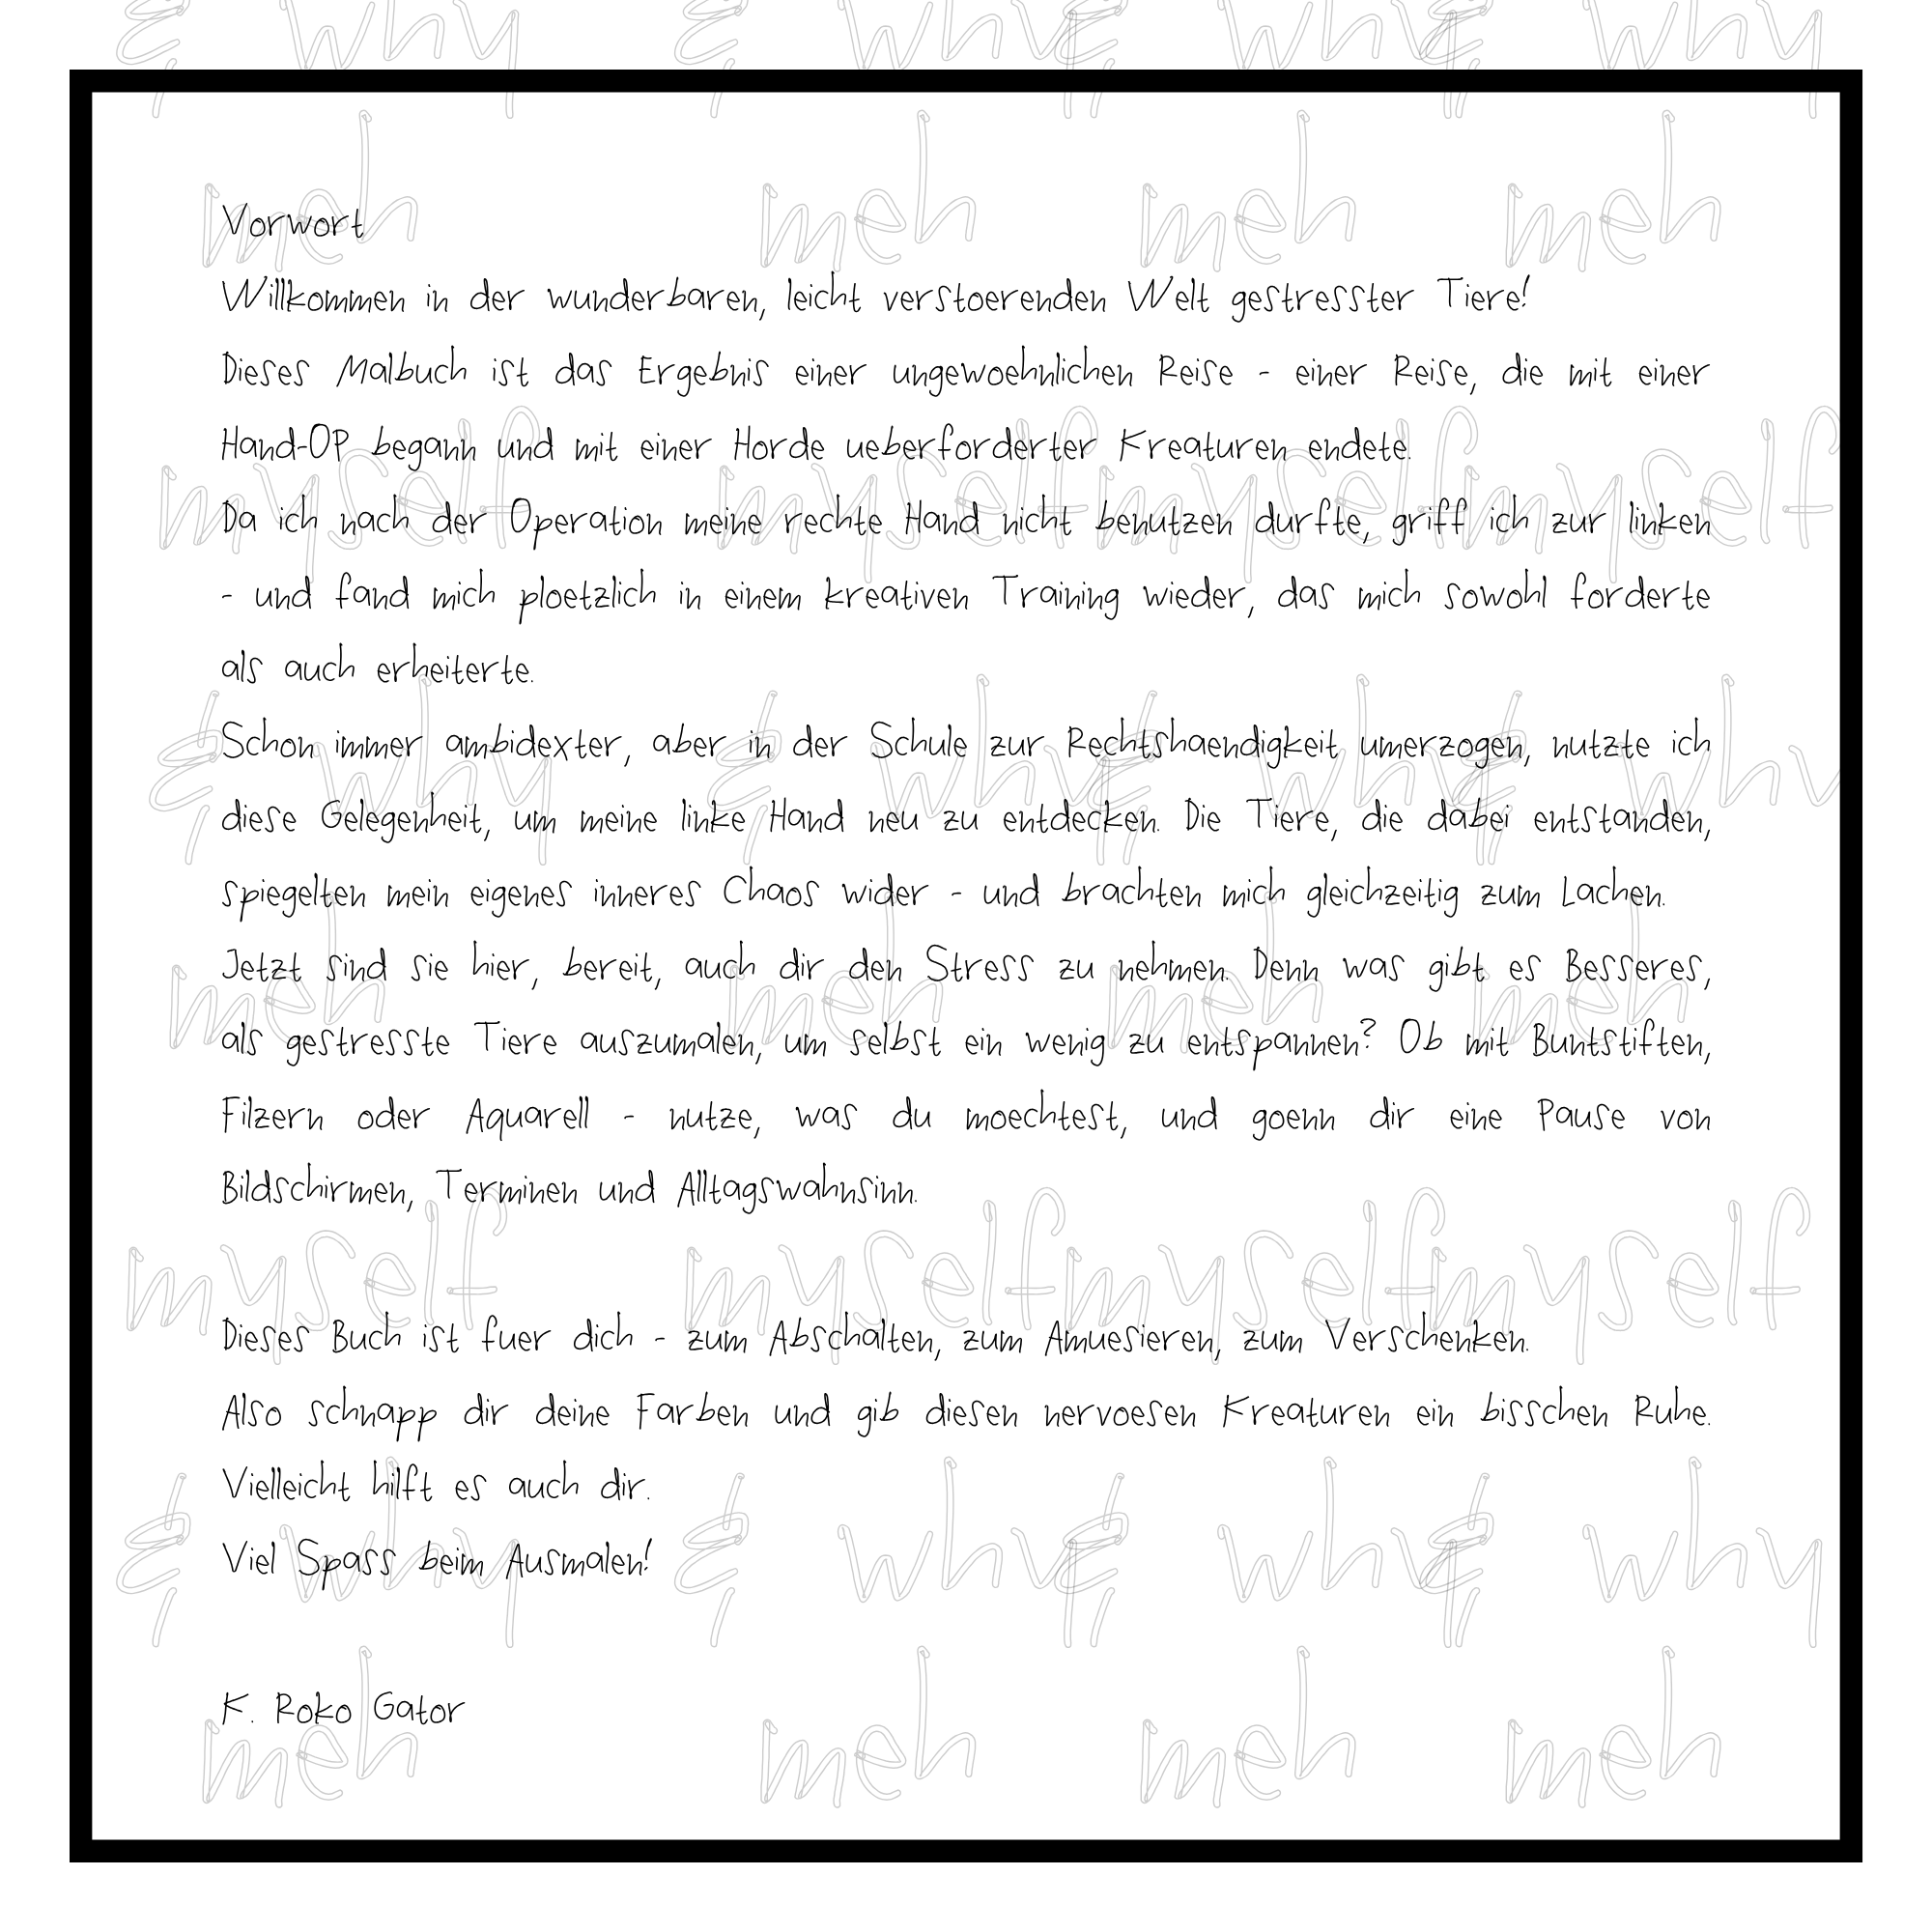 & why & why & why & why
meh meh meh meh
Vorwort
Willkommen in der wunderbaren, leicht verstoerenden Welt gestresster Tiere!
Dieses Malbuch ist das Ergebnis einer ungewoehnlichen Reise - einer Reise, die mit einer
Hand-OP begann und mit einer Horde ueberforderter Kreaturen endete.
myself myself myself myself
Da ich nach der Operation meine rechte Hand nicht benutzen durfte, griff ich zur linken
- und fand mich ploetzlich in einem kreativen Training wieder, das mich sowohl forderte
als auch erheiterte.
Schon immer ambidexter, aber in der Schule zur Rechtshaendigkeit umerzogen, nutzte ich
& why & why & why & why
diese Gelegenheit, um meine linke Hand neu zu entdecken. Die Tiere, die dabei entstanden,
spiegelten mein eigenes inneres Chaos wider - und brachten mich gleichzeitig zum Lachen.
Jetzt sind sie hier, bereit, auch dir den Stress zu nehmen. Denn was gibt es Besseres,
meh meh meh meh
als gestresste Tiere auszumalen, um selbst ein wenig zu entspannen? Ob mit Buntstiften,
Filzern oder Aquarell - nutze, was du moechtest, und goenn dir eine Pause von
Bildschirmen, Terminen und Alltagswahnsinn.
myself myself myself myself
Dieses Buch ist fuer dich - zum Abschalten, zum Amuesieren, zum Verschenken.
Also schnapp dir deine Farben und gib diesen nervoesen Kreaturen ein bisschen Ruhe.
Vielleicht hilft es auch dir.
& why & why & why & why
Viel Spass beim Ausmalen!
K. Roko Gator
meh meh meh meh